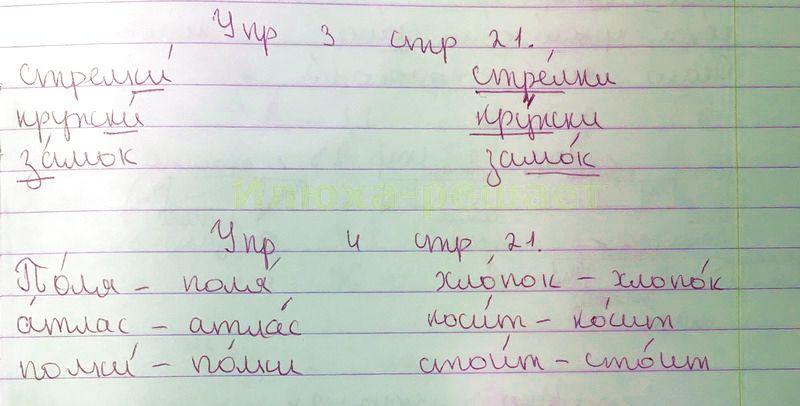 Упр 3 стр 21.
стрелки́ стре́лки
кружки́ кру́жки
за́мок замо́к
Илюха-решает
Упр 4 стр 21.
По́ля – поля́ хло́пок – хлопо́к
а́тлас – атла́с коси́т – ко́сит
полки́ – по́лки стои́т – сто́ит